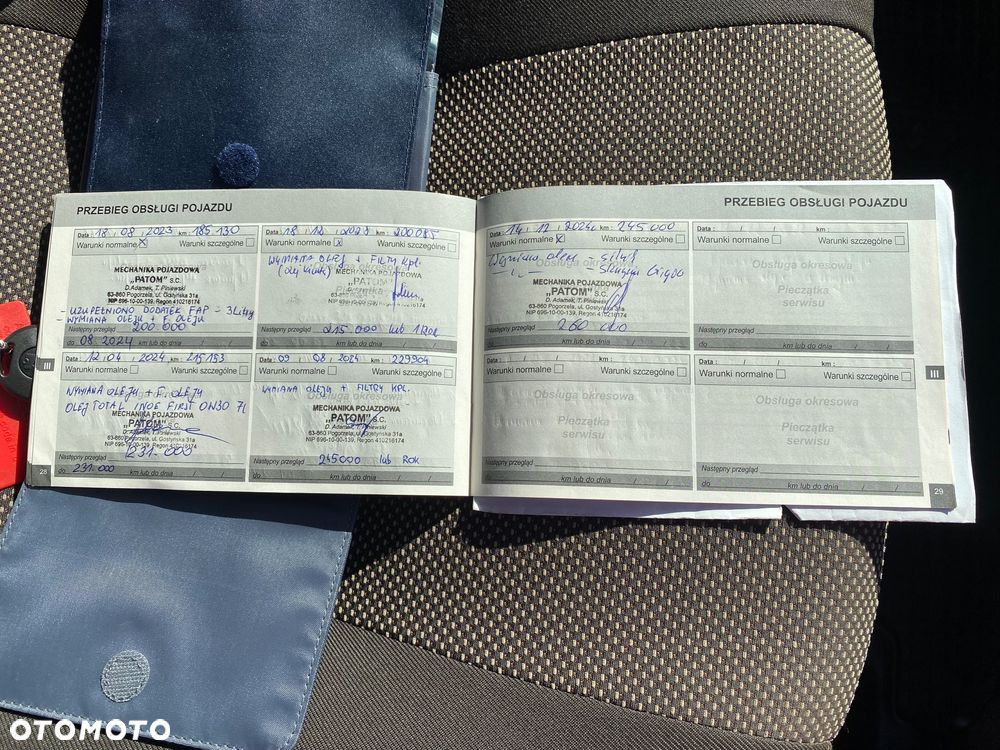 PRZEBIEG OBSŁUGI POJAZDU
Data : 18 / 08 / 2023 km : 185 130
Warunki normalne X Warunki szczególne
MECHANIKA POJAZDOWA
„PATOM” S.C.
D. Adamek, T. Piniewski
63-860 Pogorzela, ul. Gostyńska 31a
NIP 696-10-00-139, Regon 410216174
- UZUPEŁNIONO DODATEK FAP - 3 Litry
- WYMIANA OLEJU + F. OLEJU
Następny przegląd 200.000
do 08.2024 km lub do dnia / /
Data : 18 / 12 / 2023 km : 200 085
Warunki normalne X Warunki szczególne
WYMIANA OLEJ + FILTRY KPL.
MECHANIKA POJAZDOWA
„PATOM” S.C.
63-860 Pogorzela, ul. Gostyńska 31a
NIP 696-10-00-139, Regon 410216174
Następny przegląd 215 000 lub 1 Rok
do km lub do dnia / /
III
Data : 12 / 04 / 2024 km : 215 153
Warunki normalne Warunki szczególne
WYMIANA OLEJU + F. OLEJU
OLEJ TOTAL INOE FIRST OW30 7L
MECHANIKA POJAZDOWA
„PATOM” S.C.
D. Adamek, T. Piniewski
63-860 Pogorzela, ul. Gostyńska 31a
NIP 696-10-00-139, Regon 410216174
231.000
Następny przegląd
do 231.000 km lub do dnia / /
28
Data : 09 / 08 / 2024 km : 229904
Warunki normalne Warunki szczególne
WYMIANA OLEJU + FILTRY KPL.
MECHANIKA POJAZDOWA
„PATOM” S.C.
D. Adamek, T. Piniewski
63-860 Pogorzela, ul. Gostyńska 31a
NIP 696-10-00-139, Regon 410216174
Następny przegląd 245000 lub Rok
do km lub do dnia / /
PRZEBIEG OBSŁUGI POJAZDU
Data : 14 / 12 / 2024 km : 245 000
Warunki normalne X Warunki szczególne
Obsługa okresowa
MECHANIKA POJAZDOWA
„PATOM” S.C.
D. Adamek, T. Piniewski
63-860 Pogorzela, ul. Gostyńska 31a
NIP 696-10-00-139, Regon 410216174
Następny przegląd 260 000
do km lub do dnia / /
Data : / / km :
Warunki normalne Warunki szczególne
Obsługa okresowa
Pieczątka
serwisu
Następny przegląd
do km lub do dnia / /
Data : / / km :
Warunki normalne Warunki szczególne
Obsługa okresowa
Pieczątka
serwisu
Następny przegląd
do km lub do dnia / /
Data : / / km :
Warunki normalne Warunki szczególne
Obsługa okresowa
Pieczątka
serwisu
Następny przegląd
do km lub do dnia / /
III
29
OTOMOTO